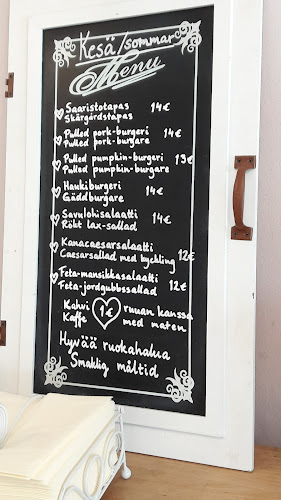 Kesä/sommar
Menu
Saaristotapas 14€
Skärgårdstapas
Pulled pork-burgeri 14€
Pulled pork-burgare
Pulled pumpkin-burgeri 13€
Pulled pumpkin-burgare
Haukiburgeri 14€
Gäddburgare
Savulohisalaatti 14€
Rökt lax-sallad
Kanacaesarsalaatti
Caesarsallad med kyckling 12€
Feta-mansikkasalaatti
Feta-jordgubbssallad 12€
Kahvi 1€ ruuan kanssa
Kaffe med maten
Hyvää ruokahalua
Smaklig måltid